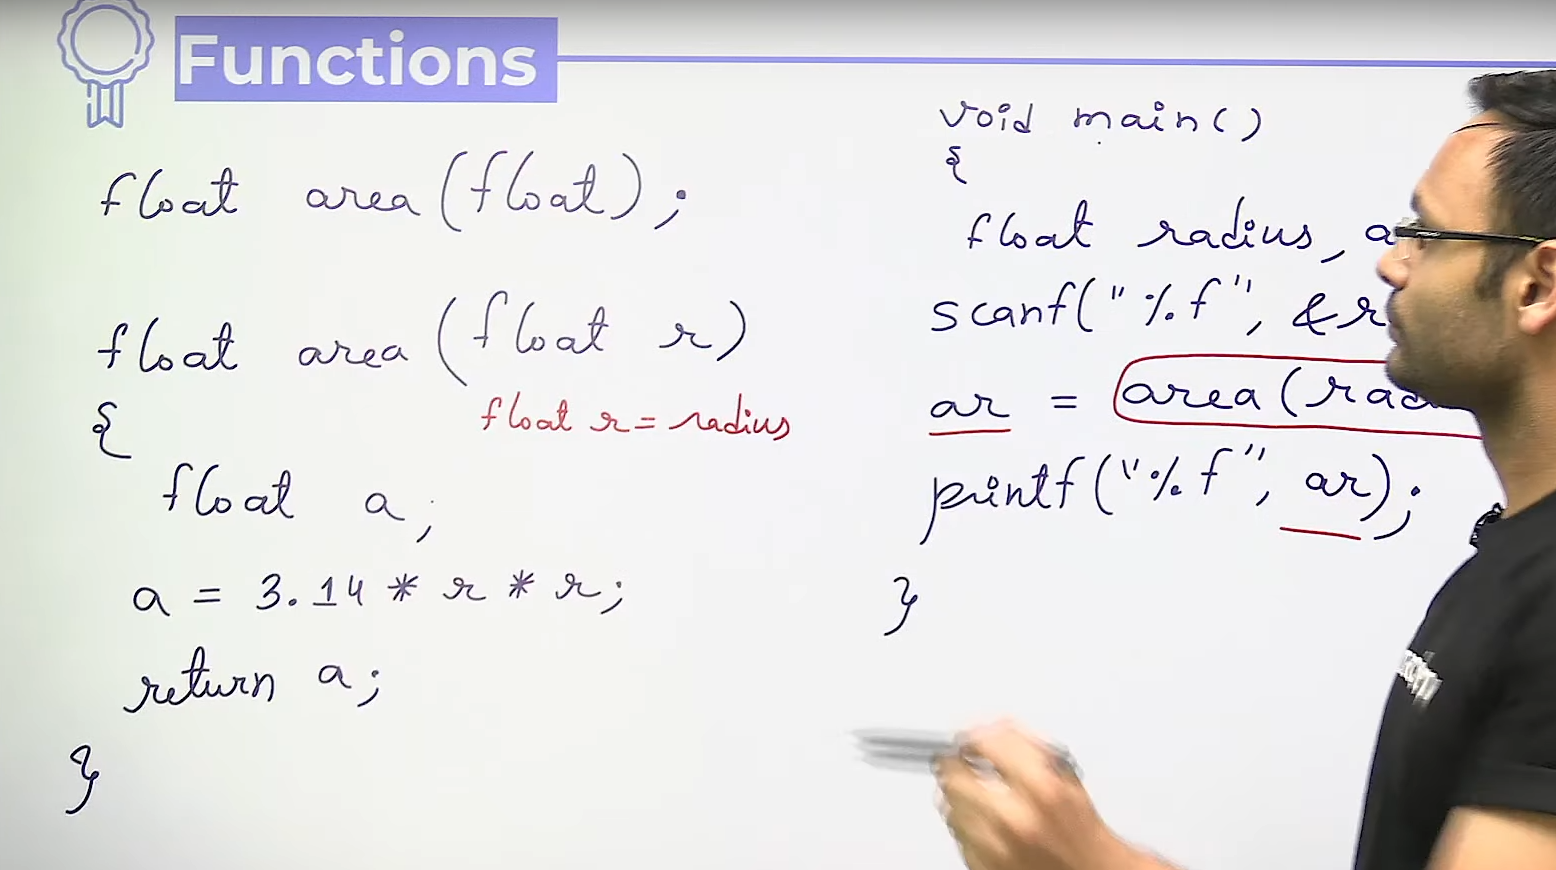 Functions
float area(float);
float area(float r)
{
float r = radius
float a;
a = 3.14 * r * r;
return a;
}
void main()
{
float radius, a
scanf("%f", &r
ar = area(rad
printf("%f", ar);
}